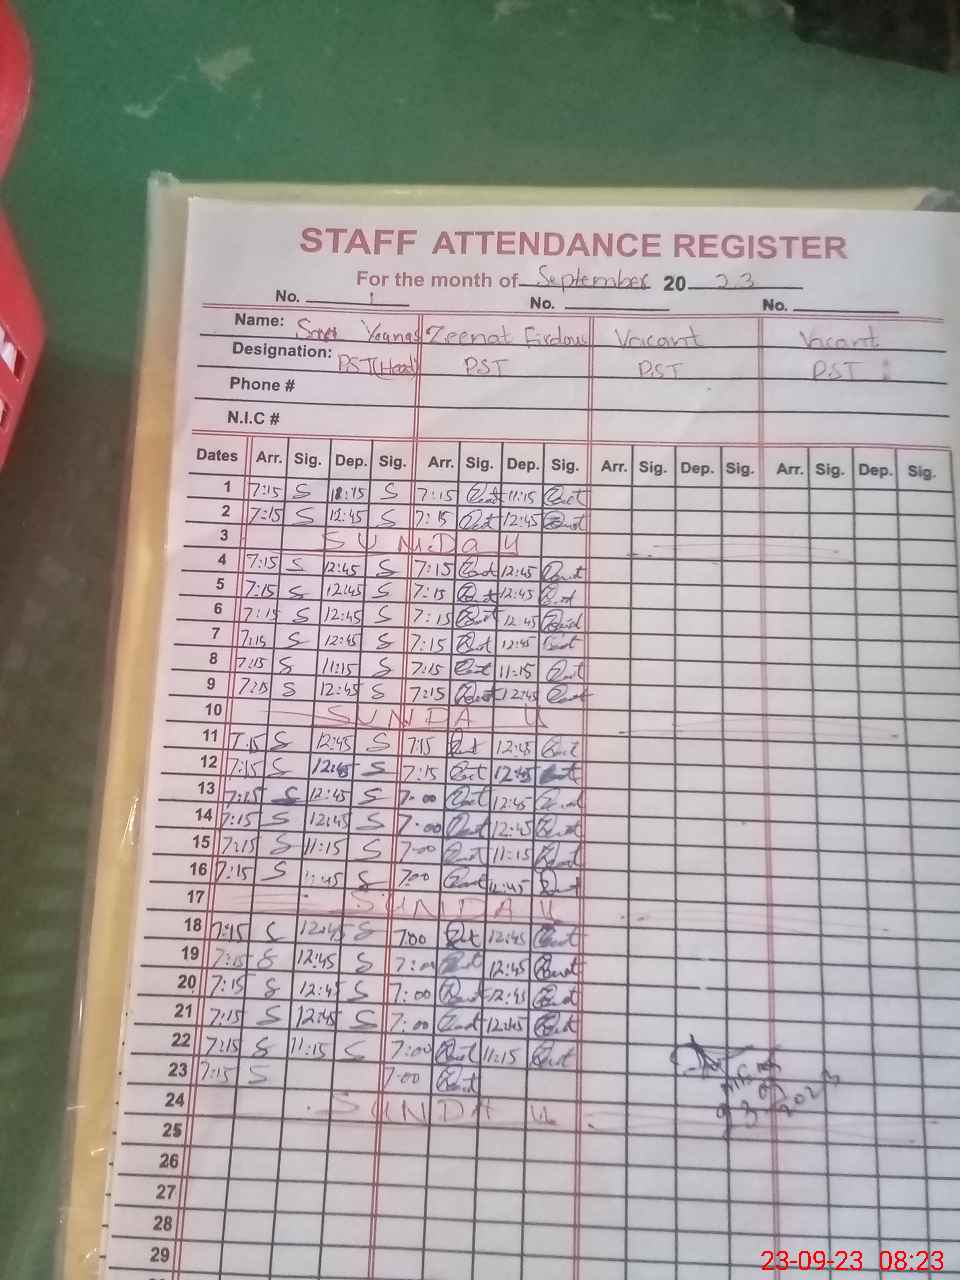 STAFF ATTENDANCE REGISTER
For the month of September 20 23
No. 1 No. No.
Name: Younas Zeenat Firdous Vacant Vacant
Designation: PST(Head) PST PST PST
Phone #
N.I.C #
Dates Arr. Sig. Dep. Sig. Arr. Sig. Dep. Sig. Arr. Sig. Dep. Sig. Arr. Sig. Dep. Sig.
1 7:15 S 11:15 S 7:15 11:15
2 7:15 S 12:45 S 7:15 12:45
3 SUNDAY
4 7:15 S 12:45 S 7:15 12:45
5 7:15 S 12:45 S 7:15 12:45
6 7:15 S 12:45 S 7:15 12:45
7 7:15 S 12:45 S 7:15 12:45
8 7:15 S 11:15 S 7:15 11:15
9 7:15 S 12:45 S 7:15 12:45
10 SUNDAY
11 7:15 S 12:45 S 7:15 12:45
12 7:15 S 12:45 S 7:15 12:45
13 7:15 S 12:45 S 7:00 12:45
14 7:15 S 12:45 S 7:00 12:45
15 7:15 S 11:15 S 7:00 11:15
16 7:15 S 12:45 S 7:00 12:45
17 SUNDAY
18 7:15 S 12:45 S 7:00 12:45
19 7:15 S 12:45 S 7:00 12:45
20 7:15 S 12:45 S 7:00 12:45
21 7:15 S 12:45 S 7:00 12:45
22 7:15 S 11:15 S 7:00 11:15
23 7:15 S 7:00
24 SUNDAY
25
26
27
28
29
23-09-23 08:23